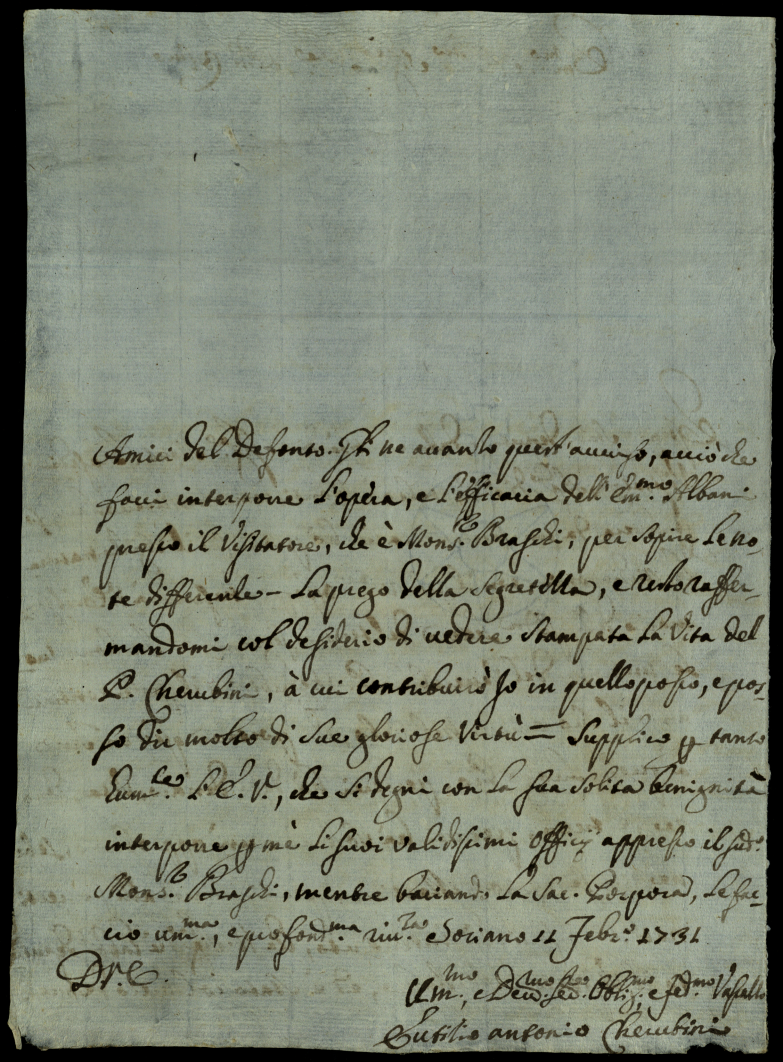 Amici del Defonto. Gle ne avanzo quest'avviso, acciò che
facci interporre l'opera, e l'efficacia dell'Em.mo Albani
presso il Visitatore, che è Mons.r Braschi, per sopire le no-
te differenze - La prego della Segretezza, e resto raffer-
mandomi col desiderio di vedere stampata la Vita del
P. Cherubini, à cui contribuirò Jo in quello posso, e pos-
so dir molto di sue gloriose Virtù = Supplico p tanto
hum.te l'E. V., che si degni con la sua solita benignità
interporre p mè li suoi validissimi offici appresso il sud.o
Mons.r Braschi, mentre baciando la Sac. Porpora, le fac-
cio um.ma, e profond.ma riv.za Soriano 11 Febr.o 1731
Di V. E.
Um.mo, e Dev.mo Ser. Obblig.mo e fed.mo Vassallo
Antonio Cherubini